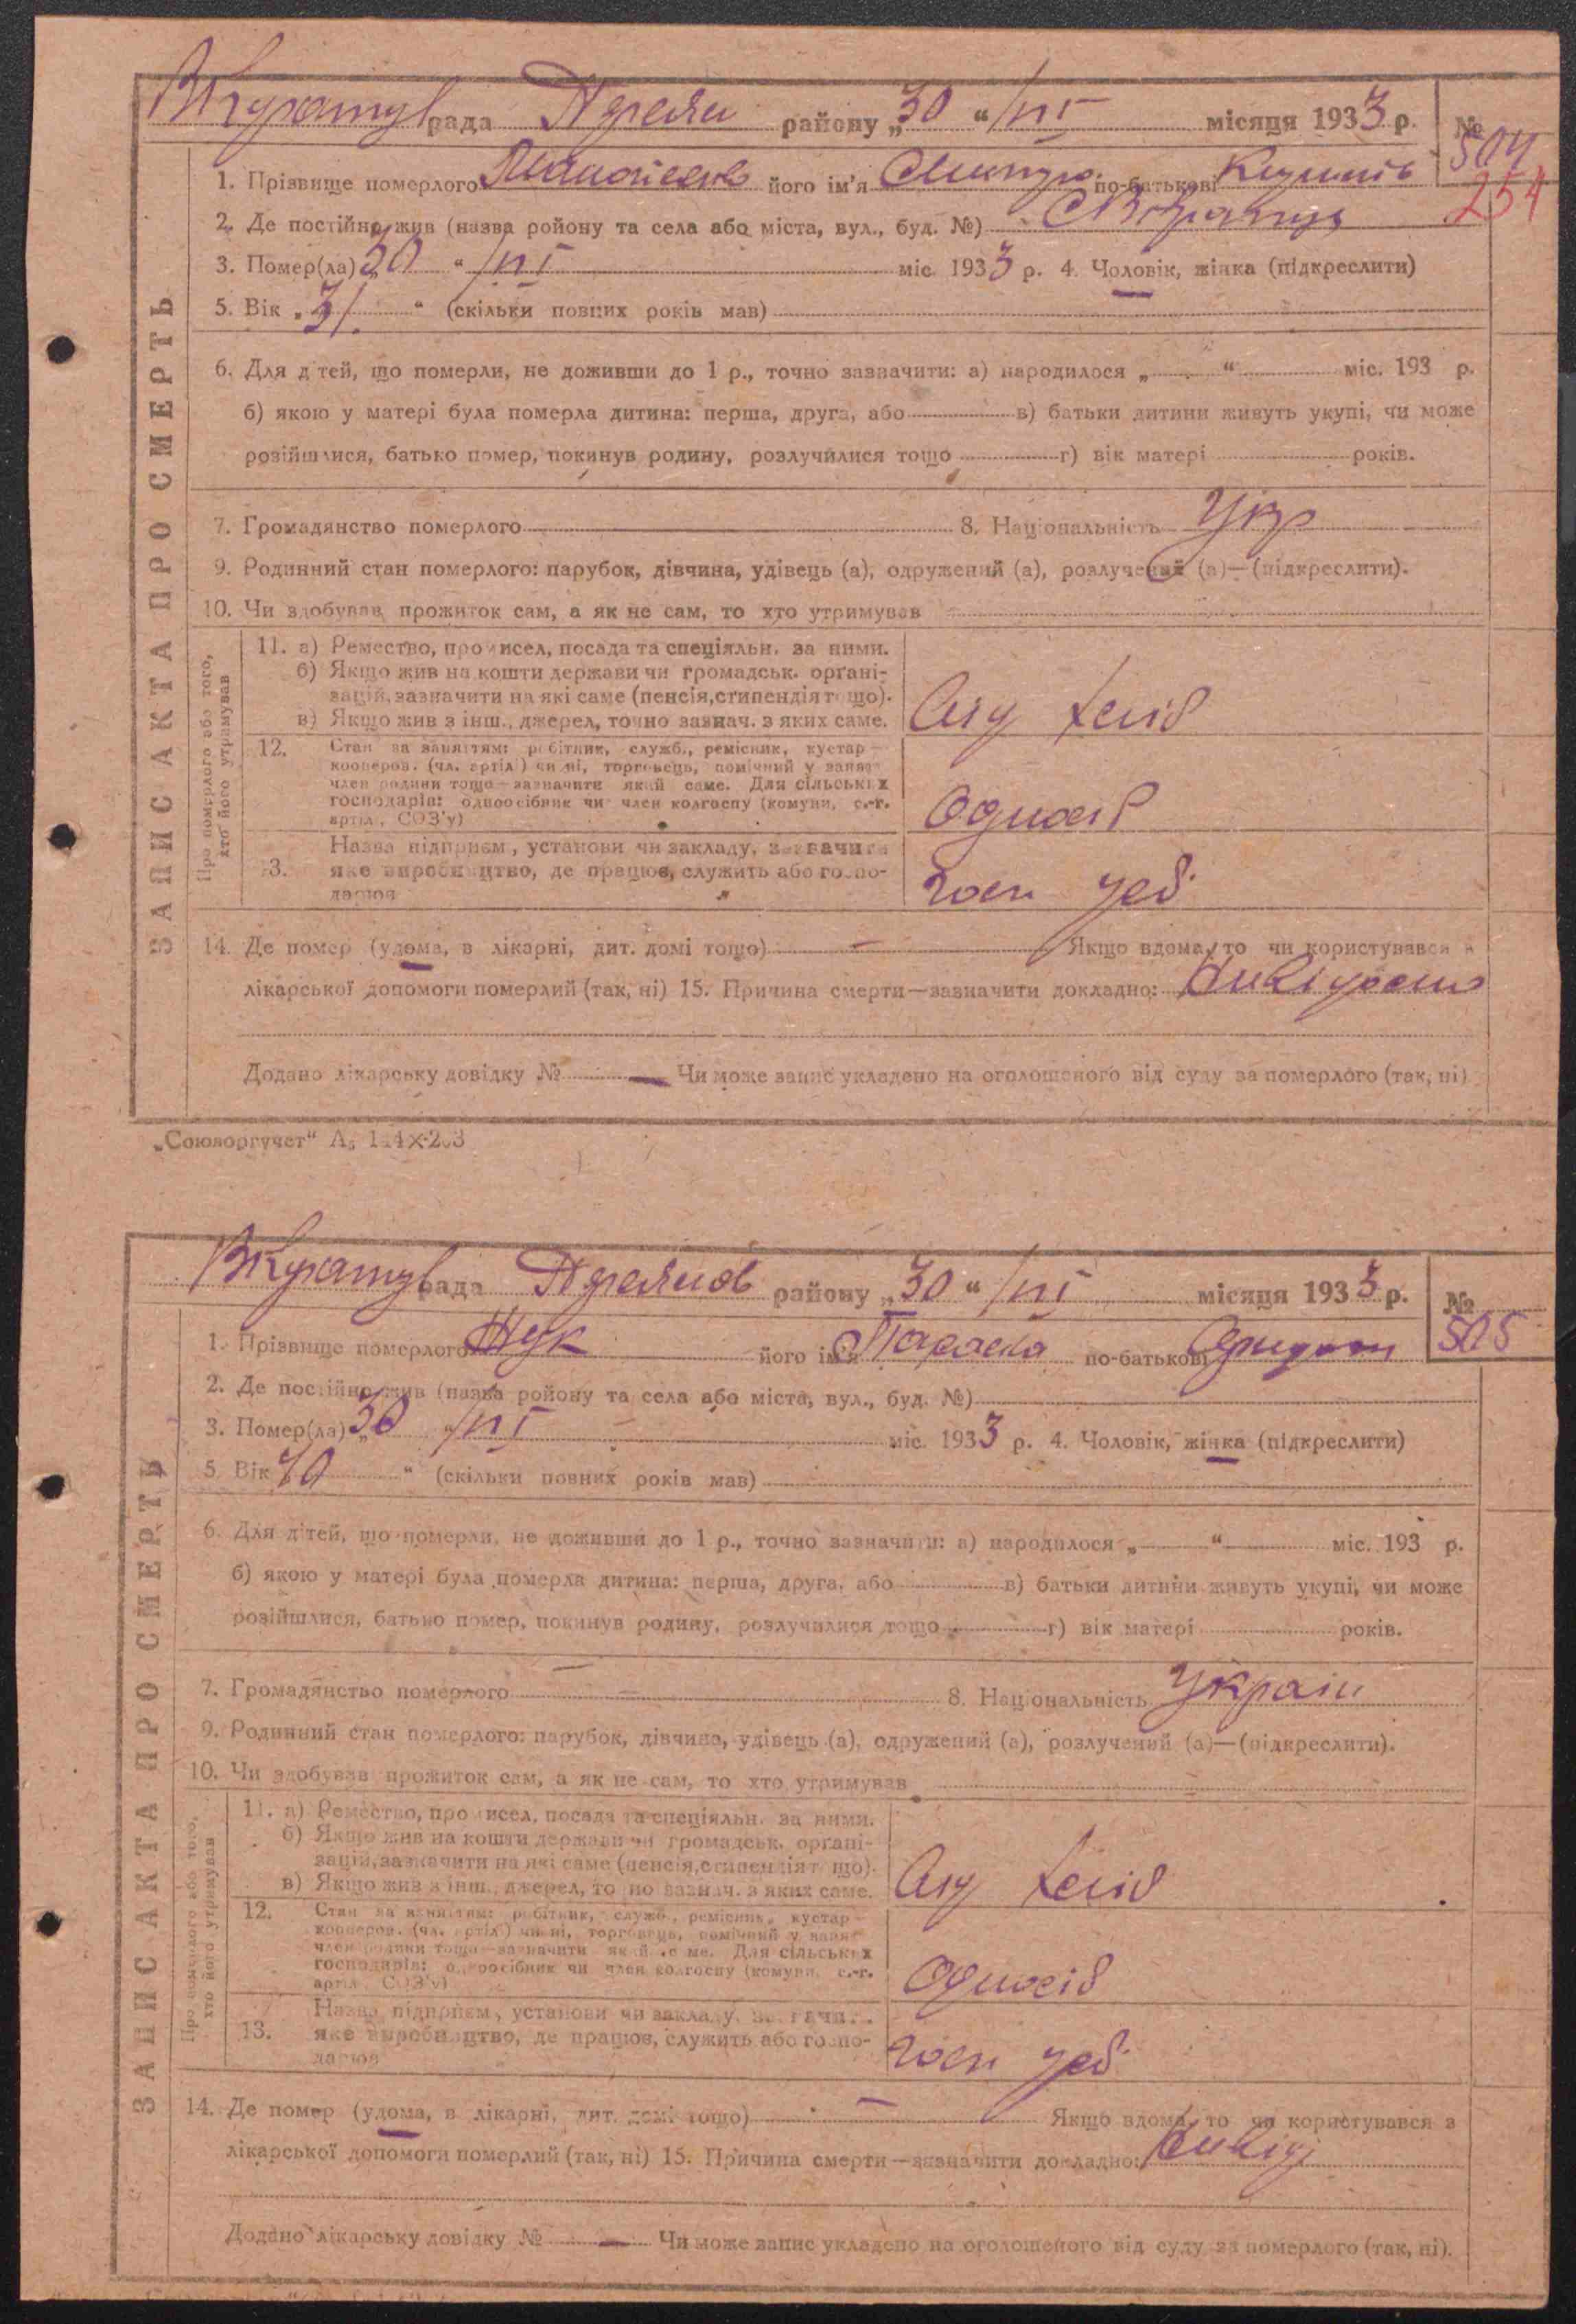 рада района „30 “ /III місяця 1933 р. №
504
254
1. Прізвище померлого його ім'я по-батькові
2. Де постійно жив (назва ройону та села або міста, вул., буд. №)
3. Помер(ла) 30 “ /III міс 1933 р. 4. Чоловік, жінка (підкреслити)
5. Вік „31. “ (скільки повних років мав)
6. Для дітей, що померли, не доживши до 1 р., точно зазначити: а) народилося „ “ міс. 193 р.
б) якою у матері була померла дитина: перша, друга, або в) батьки дитини живуть укупі, чи може
розійшлися, батько помер, покинув родину, розлучилися тощо г) вік матері років.
7. Громадянство померлого 8. Національність Укр
9. Родинний стан померлого: парубок, дівчина, удівець (а), одружений (а), розлучений (а)—(підкреслити).
10. Чи здобував прожиток сам, а як не сам, то хто утримував
ЗАПИС АКТА ПРО СМЕРТЬ
Про померлого або того, хто його утримував
11. а) Ремество, промисел, посада та спеціяльн. за ними.
б) Якщо жив на кошти держави чи громадськ. орґані-
зацій, зазначити на які саме (пенсія, стипендія тощо).
в) Якщо жив з інш., джерел, точно зазнач. з яких саме.
12. Стан за заняттям: робітник, служб., ремісник, кустар
кооперов. (чл. артіл) чи ні, торговець, помічний у занят
член родини тощо—зазначити який саме. Для сільських
господарів: одноосібник чи член колгоспу (комуни, с.-г.
артіл, СОЗ'у) Одноосіб
Назва підприєм, установи чи закладу, зазначити
13. яке виробництво, де працює, служить або госпо-
дарює
14. Де помер (удома, в лікарні, дит. домі тощо) — Якщо вдома, то чи користувався з
лікарської допомоги померлий (так, ні) 15. Причина смерти—зазначити докладно:
Додано лікарську довідку № — Чи може запис укладено на оголошеного від суду за померлого (так, ні)
„Союзоргучет“
рада району „30 “ /III місяця 1933 р. №
505
1. Прізвище померлого Жук його ім'я Параска по-батькові
2. Де постійно жив (назва ройону та села або міста, вул., буд. №)
3. Помер(ла) „30 “ /III міс. 1933 р. 4. Чоловік, жінка (підкреслити)
5. Вік 70 “ (скільки повних років мав)
6. Для дітей, що померли, не доживши до 1 р., точно зазначити: а) народилося „ “ міс. 193 р.
б) якою у матері була померла дитина: перша, друга, або в) батьки дитини живуть укупі, чи може
розійшлися, батько помер, покинув родину, розлучилися тощо г) вік матері років.
7. Громадянство померлого — 8. Національність Україн
9. Родинний стан померлого: парубок, дівчина, удівець (а), одружений (а), розлучений (а)—(підкреслити).
10. Чи здобував прожиток сам, а як не сам, то хто утримував
ЗАПИС АКТА ПРО СМЕРТЬ
Про померлого або того, хто його утримував
11. а) Ремество, промисел, посада та спеціяльн. за ними.
б) Якщо жив на кошти держави чи громадськ. орґані-
зацій, зазначити на які саме (пенсія, стипендія тощо).
в) Якщо жив з інш., джерел, точно зазнач. з яких саме.
12. Стан за заняттям: робітник, служб., ремісник, кустар
кооперов. (чл. артіл) чи ні, торговець, помічний у занят
член родини тощо—зазначити який саме. Для сільських
господарів: одноосібник чи член колгоспу (комуни, с.-г.
артіл, СОЗ'у) Одноосіб
Назва підприєм, установи чи закладу, зазначити
13. яке виробництво, де працює, служить або госпо-
дарює
14. Де помер (удома, в лікарні, дит. домі тощо) — Якщо вдома, то чи користувався з
лікарської допомоги померлий (так, ні) 15. Причина смерти—зазначити докладно:
Додано лікарську довідку № — Чи може запис укладено на оголошеного від суду за померлого (так, ні).